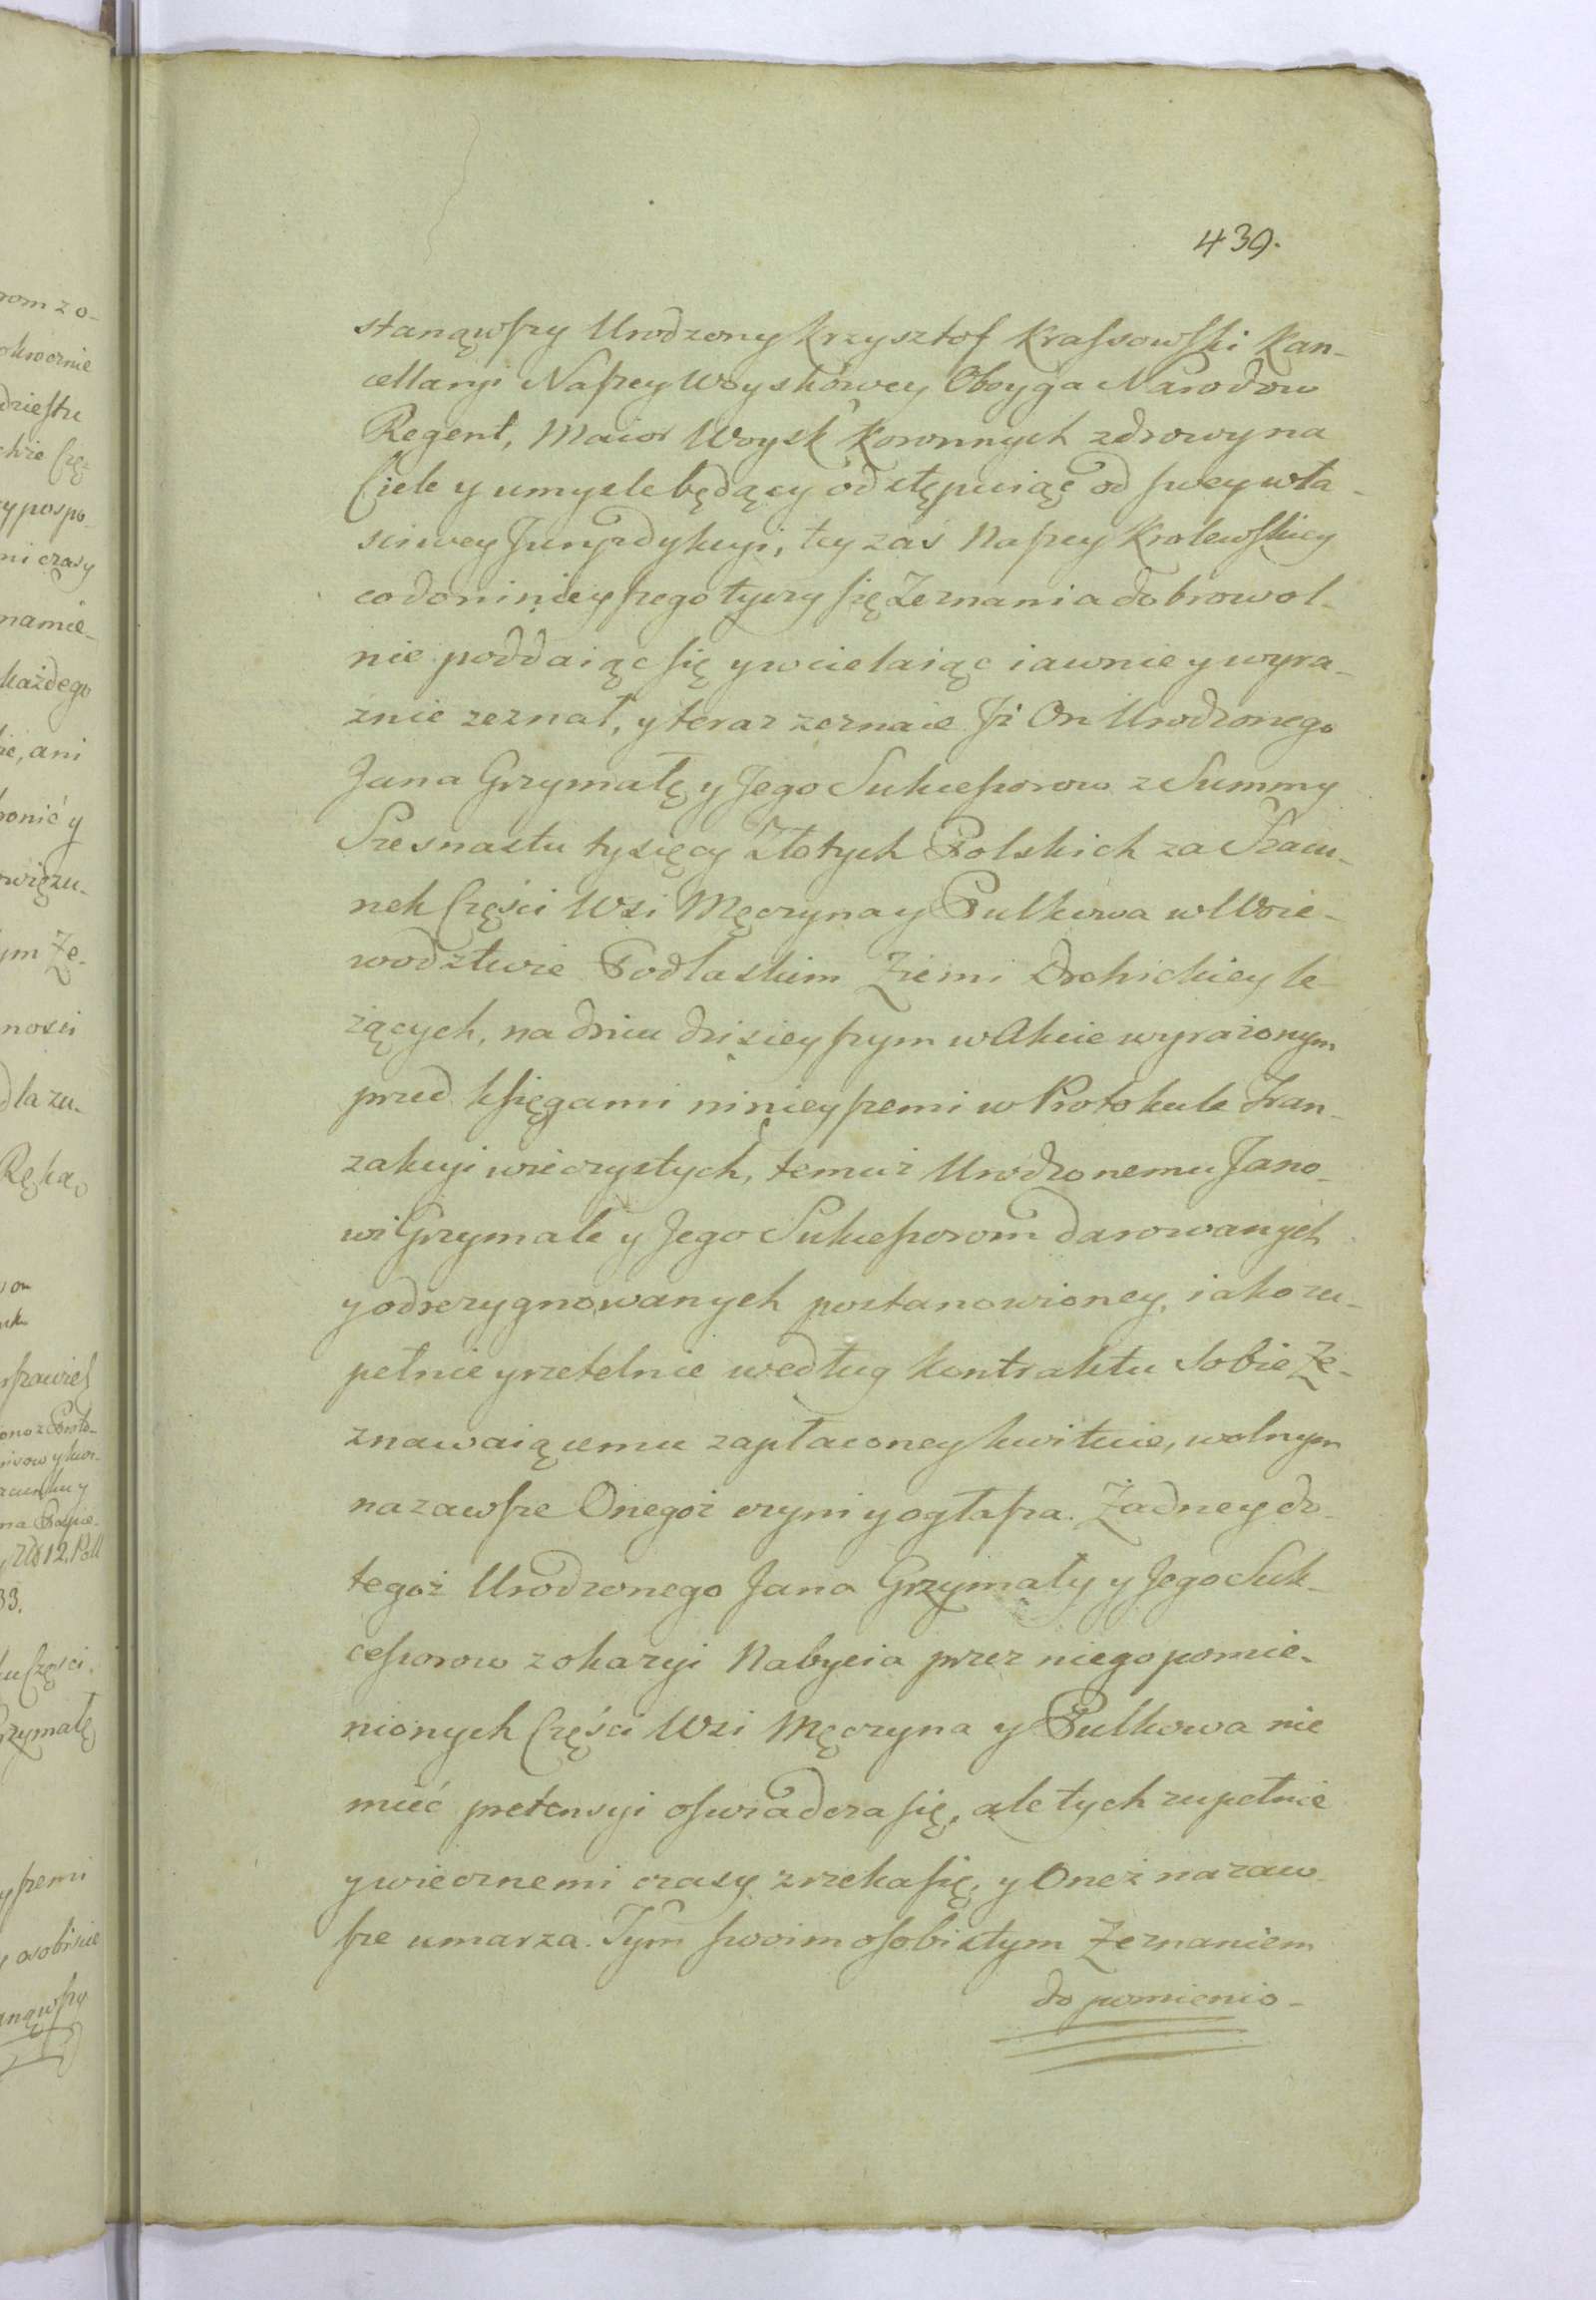 439.
stanąwszy Urodzony Krzysztof Krassowski Kan-
cellaryi Naszey Woyskowey Oboyga Narodow
Regent, Maior Woysk Koronnych zdrowy na
Ciele y umysle będący odstępuiąc od swey wła-
sciwey Juryzdykcyi, tey zas Naszey Krolewskiey
co do ninieyszego tyczy się Zeznania dobrowol-
nie poddaiąc się y wcielaiąc iawnie y wyra-
znie zeznał, y teraz zeznaie Jż On Urodzonego
Jana Grzymałę y Jego Sukcessorow z Summy
Szesnastu tysięcy Złotych Polskich za Szacu-
nek Części Wsi Męczyna y Pulkowa w Woie-
wodztwie Podlaskim Ziemi Drohickiey le-
żących, na dniu dzisieyszym w Akcie wyrażonym
przed księgami ninieyszemi w Protokule Tran-
zakcyi wieczystych, temuż Urodzonemu Jano-
wi Grzymale y Jego Sukcessorom darowanych
y odrezygnowanych postanowioney, iako zu-
pełnie y rzetelnie według kontraktu sobie Ze-
znawaiącemu zapłaconey kwituie, wolnym
na zawsze Onegoż czyni y ogłasza. Żadney do
tegoż Urodzonego Jana Grzymały y Jego Suk-
cessorow z okazyi Nabycia przez niego pomie-
nionych Części Wsi Męczyna y Pulkowa nie
mieć pretensyi oswiadcza się, ale tych zupełnie
y wiecznemi czasy zrzeka się, y Oneż na zaw-
sze umarza. Tym swoim osobistym Zeznaniem
do pomienio-